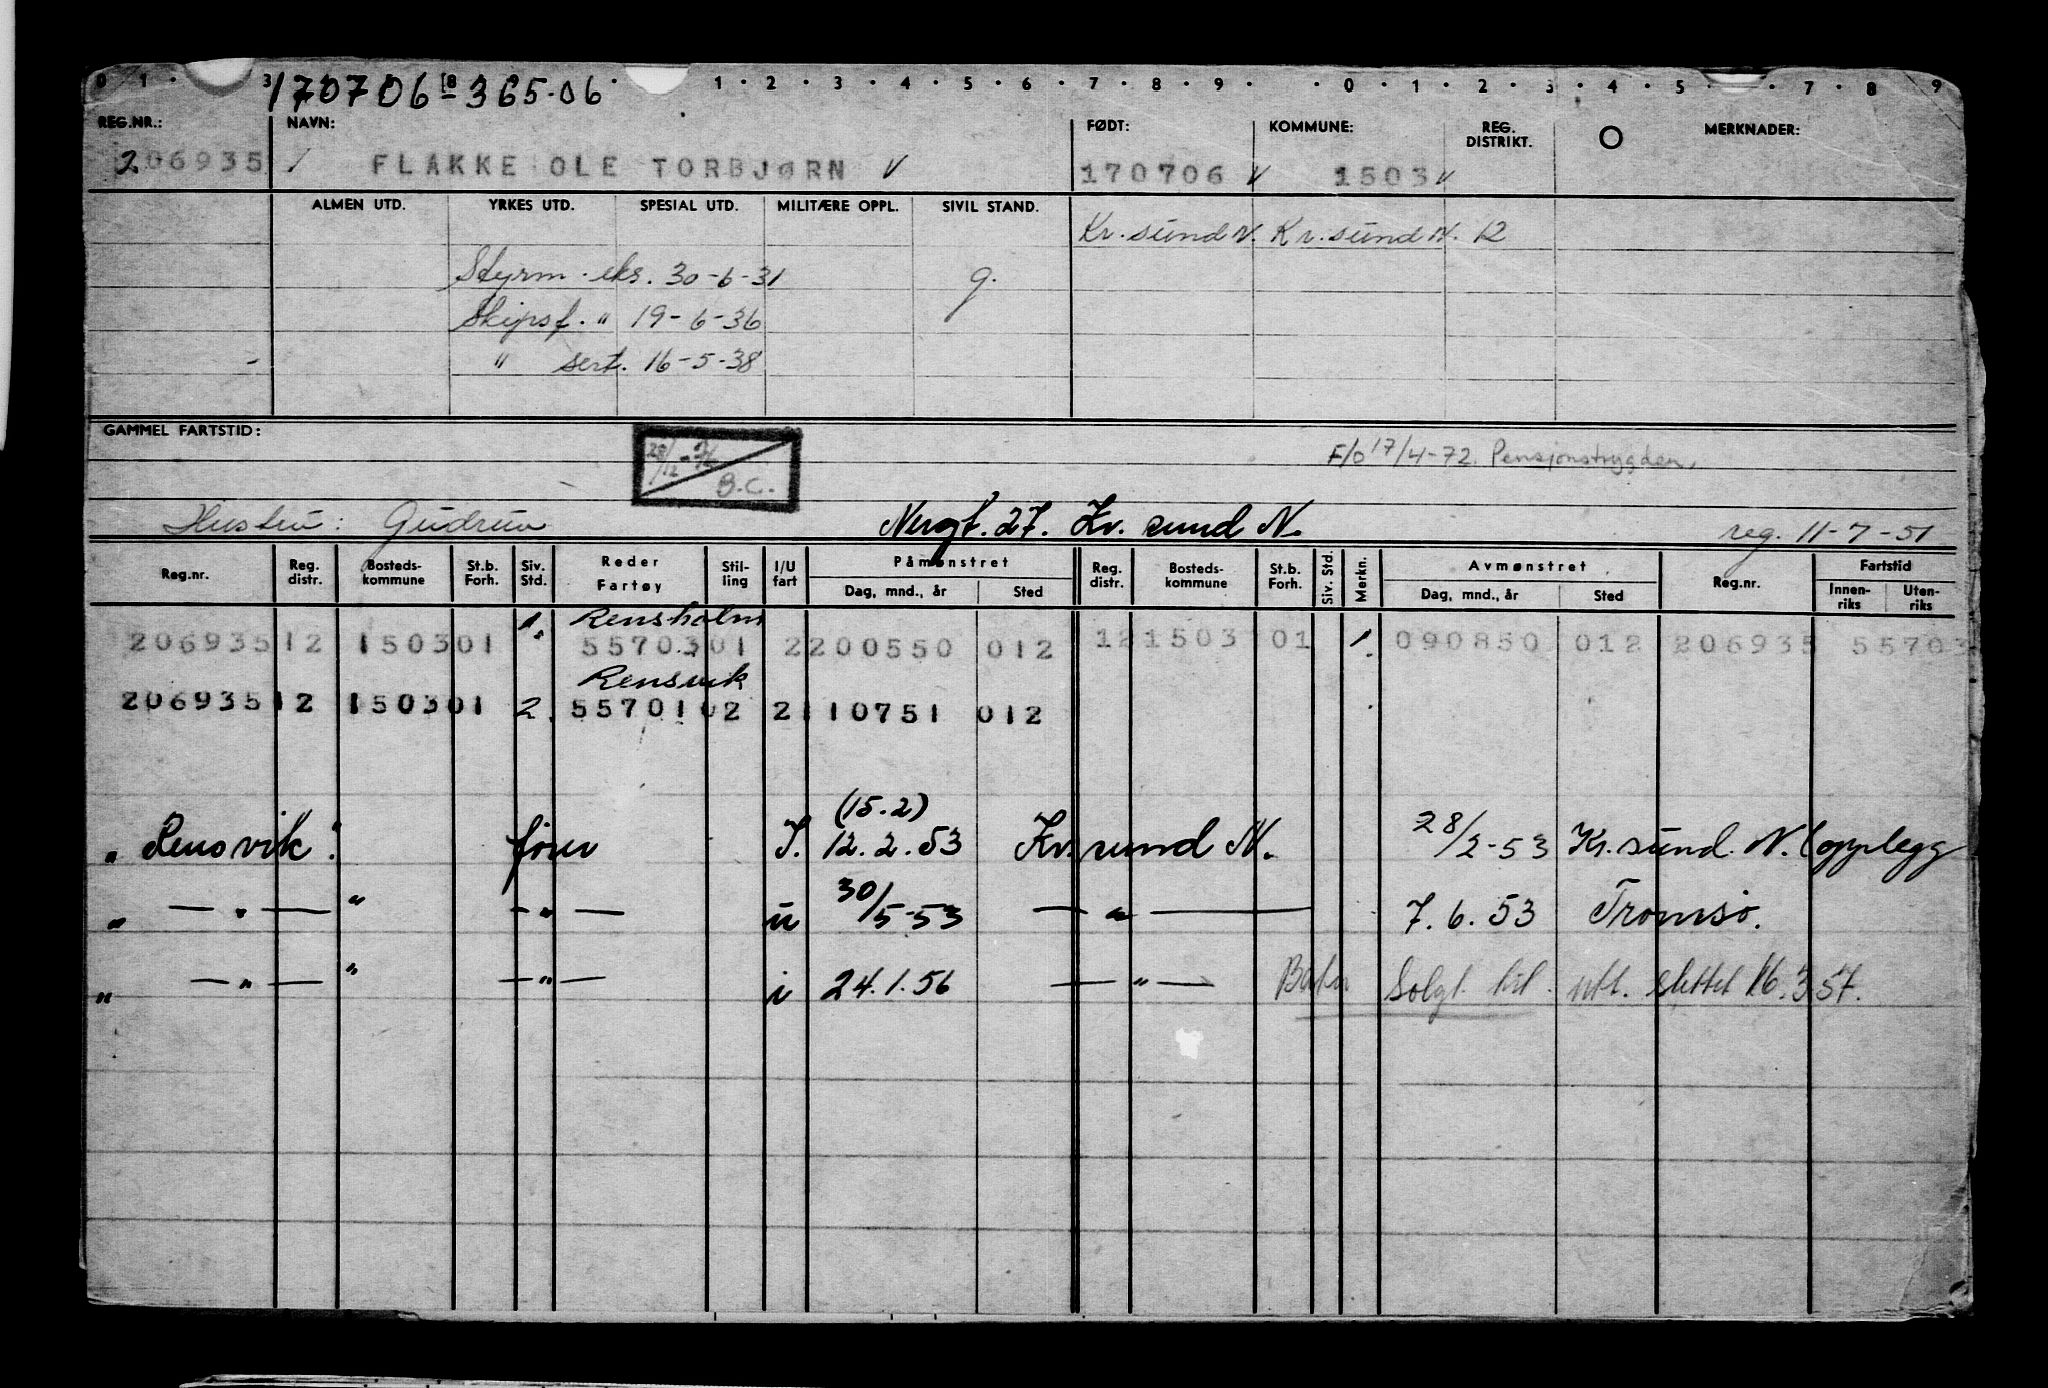 0 1 · 3 170706 - 365-06 1 · 2 · 3 · 4 · 5 · 6 · 7 · 8 · 9 · · 0 · 1 · 2 · 3 · 4 · 5 · · 7 · 8 · 9
REG.NR.: NAVN: FØDT: KOMMUNE: REG. DISTRIKT. O MERKNADER:
206935 / FLAKKE OLE TORBJØRN v 170706 v 1503 v
ALMEN UTD. YRKES UTD. SPESIAL UTD. MILITÆRE OPPL. SIVIL STAND.
Kr.sund N. Kr.sund N. 12
Styrm. eks. 30-6-31 g.
Skipsf. " 19-6-36
- " sert. 16-5-38
GAMMEL FARTSTID:
28/12 - B.C.
F/O 17/4-72. Pensjonstrygden.
Hustru: Gudrun Nergt. 27. Kr. sund N. reg. 11-7-51
Reg.nr. Reg. distr. Bosteds-kommune St.b. Forh. Siv. Std. Reder Fartøy Stil-ling I/U fart Påmønstret Dag, mnd., år Sted Reg. distr. Bosteds-kommune St.b. Forh. Siv. Std. Merkn. Avmønstret Dag, mnd., år Sted Reg.nr. Fartstid Innen-riks Uten-riks
1. Rensholm
206935 12 1503 01 55703 01 2 200550 012 12 1503 01 1. 090850 012 206935 55703
Rensvik
206935 12 1503 01 2. 55701 02 2 110751 012
(15.2)
" Rensvik." fører I. 12.2.53 Kr.sund N. 28/2-53 Kr.sund. N. (opplegg
" — " — " — " — u 30/5-53 — " — 7.6.53 Tromsø.
" — " — " — " — i 24.1.56 — " — Solgt til utl. slettet 16.3.57.